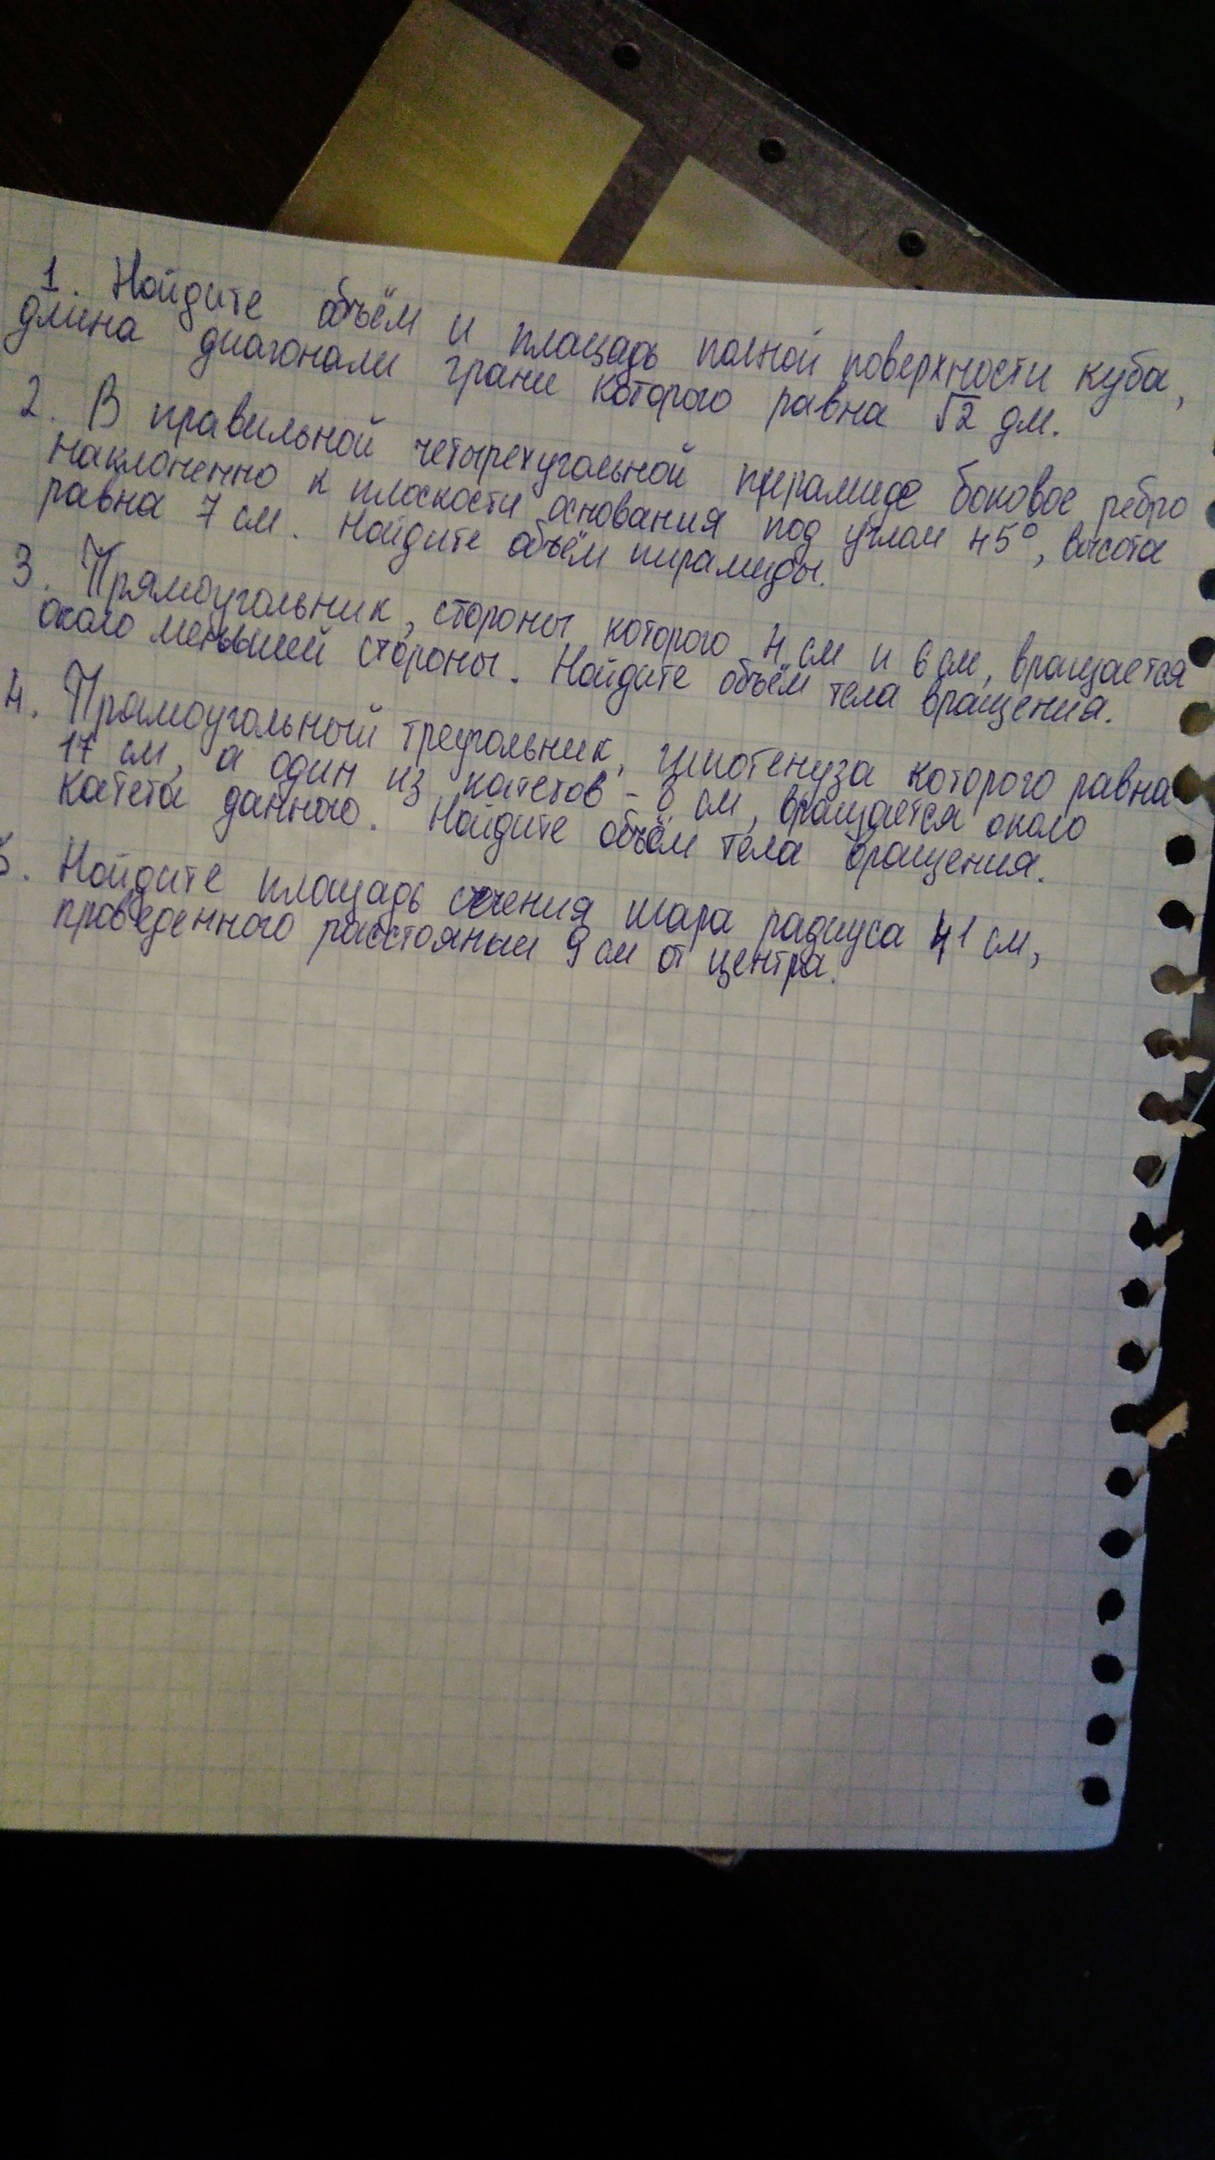 1. Найдите объём и площадь полной поверхности куба,
длина диагонали грани которого равна √2 дм.
2. В правильной четырехугольной пирамиде боковое ребро
наклоненно к плоскости основания под углом 45°, высота
равна 7 см. Найдите объём пирамиды.
3. Прямоугольник, стороны которого 4 см и 6 см, вращается
около меньшей стороны. Найдите объём тела вращения.
4. Прямоугольный треугольник, гипотенуза которого равна
17 см, а один из катетов - 8 см, вращается около
катета данного. Найдите объём тела вращения.
5. Найдите площадь сечения шара радиуса 41 см,
проведенного расстоянии 9 см от центра.